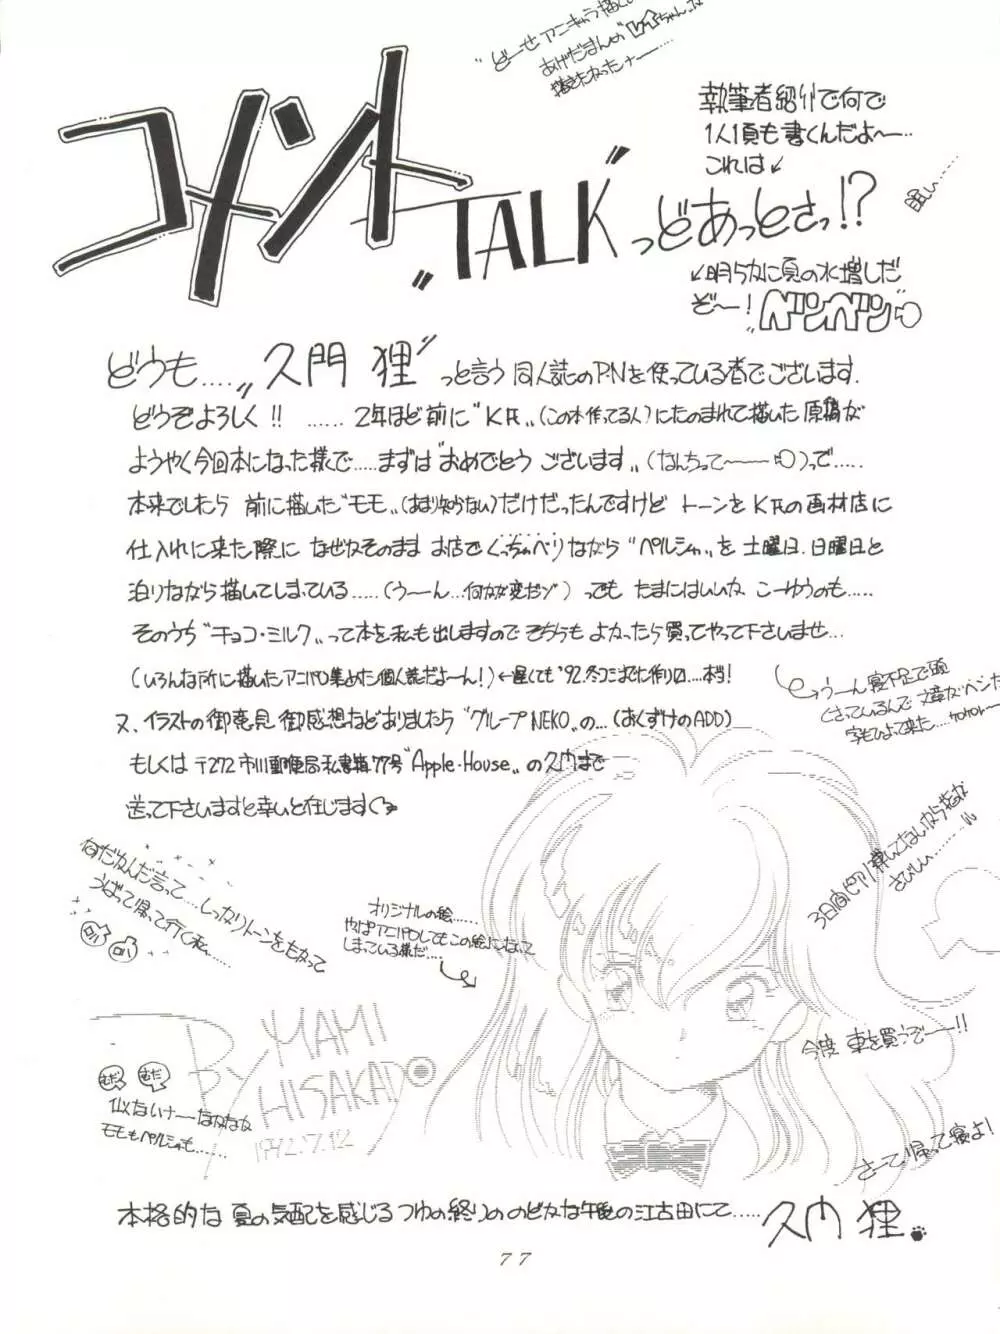 "どーせアニキャラ描く
あげだまんの
描きたかったナー……
コメント
"TALK"っどあっとさっ!?
執筆者紹介で何で
1人1頁も書くんだよ〜…
これは↙
眠い……
↙明らかに夏の水増しだ
ぞ〜!
ベンベン
どうも...."久門 狸"っと言う 同人誌のP.Nを使っている者でございます.
どうぞよろしく!! ...... 2年ほど前に"K氏"(この本作ってる人)にたのまれて描いた原稿が
ようやく今回本になった様で.....まずは"おめでとう ございます"(なんちって〜〜)って.....
本来でしたら 前に描いた"モモ"(あまり知らない)だけだったんですけど トーンをK氏の画材店に
仕入れに来た際に なぜかそのまま お店でくっちゃべりながら "ペルシャ"を 土曜日.日曜日と
泊りながら描いてしまっている.....(う〜ん...何か変だゾ)っでも たまにはいいな こーゆうのも.....
そのうち"チョコ・ミルク"って本を私も出しますので そちらも よかったら買ってやって下さいませ...
(いろんな所に描いたアニパロ集めた個人誌だよーん!)←遅くても'92.冬コミまでに作りロ....本当!
又、イラストの御意見 御感想などありましたら"グループNEKO"の...(おくずけのADD)
もしくは 〒272 市川郵便局私書箱77号"Apple・House"の久門まで
送って下さいますと幸いと存じます
う〜ん寝不足で頭
くさっているんで 文章がヘンだ
字もひよって来た....ケロケロ〜
何だかんだ言って...しっかりトーンをもらって
うばって帰って行く私......
オリジナルの絵......
やっぱアニパロしてもこの絵になって
しまっている様だ....
3日間ピアノ弾いてないから指が
さびしい.........
今度 車を買うぞー!!
さーて 帰って寝よ!
BY MAMI
HISAKADO
1992.7.12
むだ むだ
似てないナーなかなか
モモもペルシャも......
本格的な 夏の気配を感じる つゆの終りの のどかな午後の江古田にて..... 久門 狸.
77